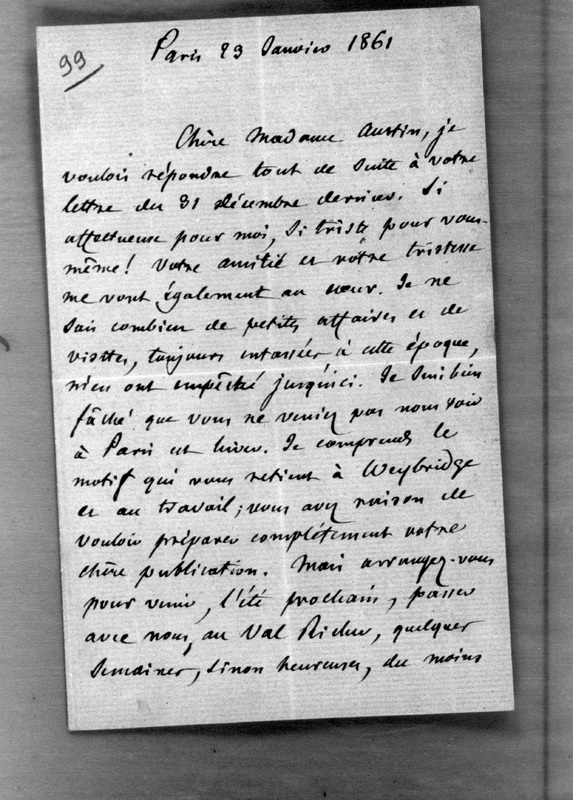 99
Paris 23 Janvier 1861
Chère Madame Austin, je
voulois répondre tout de suite à votre
lettre du 31 décembre dernier. Si
affectueuse pour moi, si triste pour vous-
même! Votre amitié et votre tristesse
me vont également au cœur. Je ne
sais combien de petites affaires et de
visites, toujours entassées à cette époque,
m'en ont empêché jusqu'ici. Je suis bien
fâché que vous ne veniez pas nous voir
à Paris cet hiver. Je comprends le
motif qui vous retient à Weybridge
et au travail; vous avez raison de
vouloir préparer complétement votre
chère publication. Mais arrangez-vous
pour venir, l'été prochain, passer
avec nous, au Val Richer, quelques
semaines, sinon heureuses, du moins